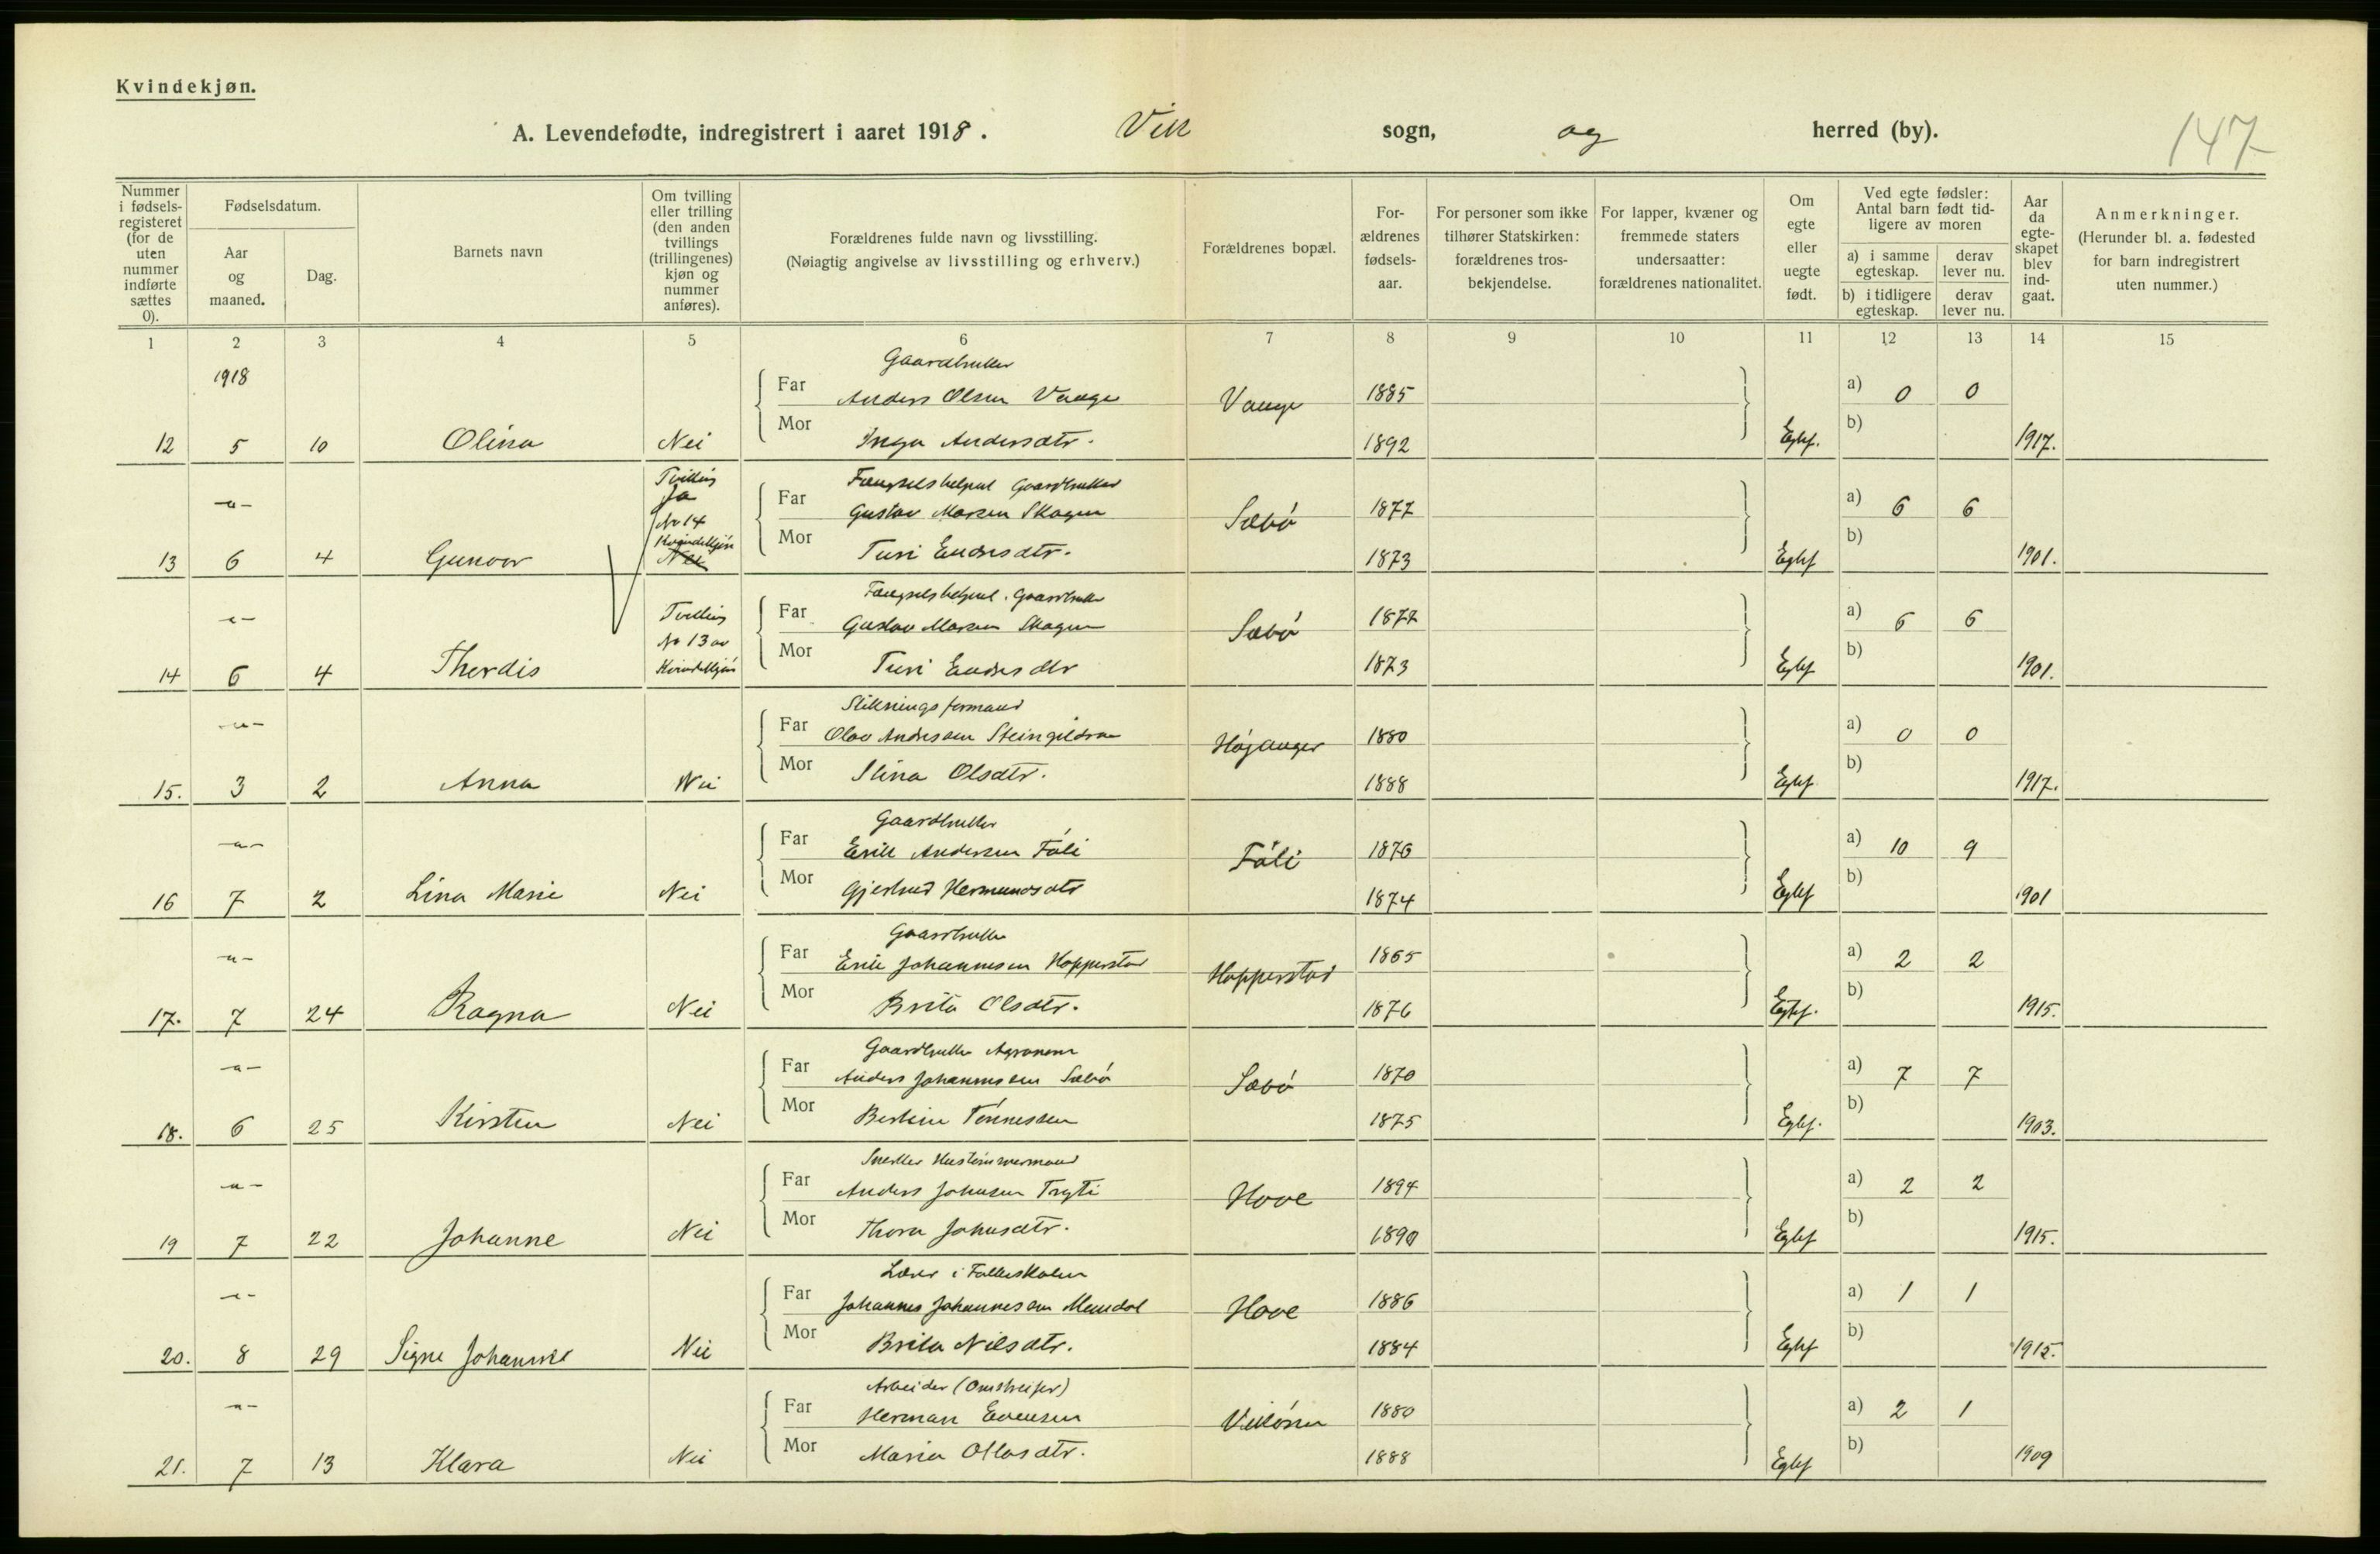 Kvindekjøn.
A. Levendefødte, indregistrert i aaret 1918. Vik sogn, og herred (by).
147
Nummer i fødsels-registeret (for de uten nummer indførte sættes 0).
Fødselsdatum.
Aar og maaned.
Dag.
Barnets navn
Om tvilling eller trilling (den anden tvillings (trillingenes) kjøn og nummer anføres).
Forældrenes fulde navn og livsstilling.
(Nøiagtig angivelse av livsstilling og erhverv.)
Forældrenes bopæl.
For-ældrenes fødsels-aar.
For personer som ikke tilhører Statskirken: forældrenes tros-bekjendelse.
For lapper, kvæner og fremmede staters undersaatter: forældrenes nationalitet.
Om egte eller uegte født.
Ved egte fødsler: Antal barn født tid-ligere av moren
a) i samme egteskap.
derav lever nu.
b) i tidligere egteskap.
derav lever nu.
Aar da egte-skapet blev ind-gaat.
Anmerkninger.
(Herunder bl. a. fødested for barn indregistrert uten nummer.)
1 2 3 4 5 6 7 8 9 10 11 12 13 14 15
1918
Gaardbruker
Far Anders Olsen Vange Vange 1885 a) 0 0
12 5 10 Olina Nei Mor Inga Andersdtr. 1892 Egtef. b) 1917.
Tvilling Ja
No 14
Kvindekjøn
-"- Fængselsbetjent Gaardbruker
Far Gustav Monsen Skagen Sæbø 1877 a) 6 6
13 6 4 Gunvor Nei Mor Turi Endresdtr. 1873 Egtef b) 1901.
-"- Tvilling Fængselsbetjent. Gaardbruker
Far Gustav Monsen Skagen Sæbø 1877 a) 6 6
No 13 av
14 6 4 Therdis Kvindekjøn Mor Turi Endresdtr 1873 Egtef b) 1901.
-"- Stikningsformand
Far Olav Andersen Høyanger 1880 a) 0 0
15. 3 2 Anna Nei Mor Stina Olsdtr. 1888 Egtef b) 1917.
Gaardbruker
-"- Far Erik Andersen Føli Føli 1876 a) 10 9
16 7 2 Lina Marie Nei Mor Gjertrud Hermundsdtr 1874 Egtef b) 1901
Gaardbruker
-"- Far Erik Johannesen Hopperstad Hopperstad 1865 a) 2 2
17. 7 24 Ragna Nei Mor Brita Olsdtr. 1876 Egtef. b) 1915.
Gaardbruker Agronom
-"- Far Anders Johannesen Sæbø Sæbø 1870 a) 7 7
18. 6 25 Kirsten Nei Mor Bertine Tønnessen 1875 Egtef. b) 1903.
Snedker Hustømmermand
-"- Far Anders Johnsen Tryti Hove 1894 a) 2 2
19 7 22 Johanne Nei Mor Thora Johnsdtr. 1890 Egtef b) 1915.
Lærer i Folkeskolen
-"- Far Johannes Johannesen Mundal Hove 1886 a) 1 1
20. 8 29 Signe Johanne Nei Mor Brita Nilsdtr. 1884 Egtef b) 1915.
Arbeider (Omstreifer)
-"- Far Herman Evensen Vikøren 1880 a) 2 1
21. 7 13 Klara Nei Mor Maria Ottosdtr. 1888 Egtef b) 1909